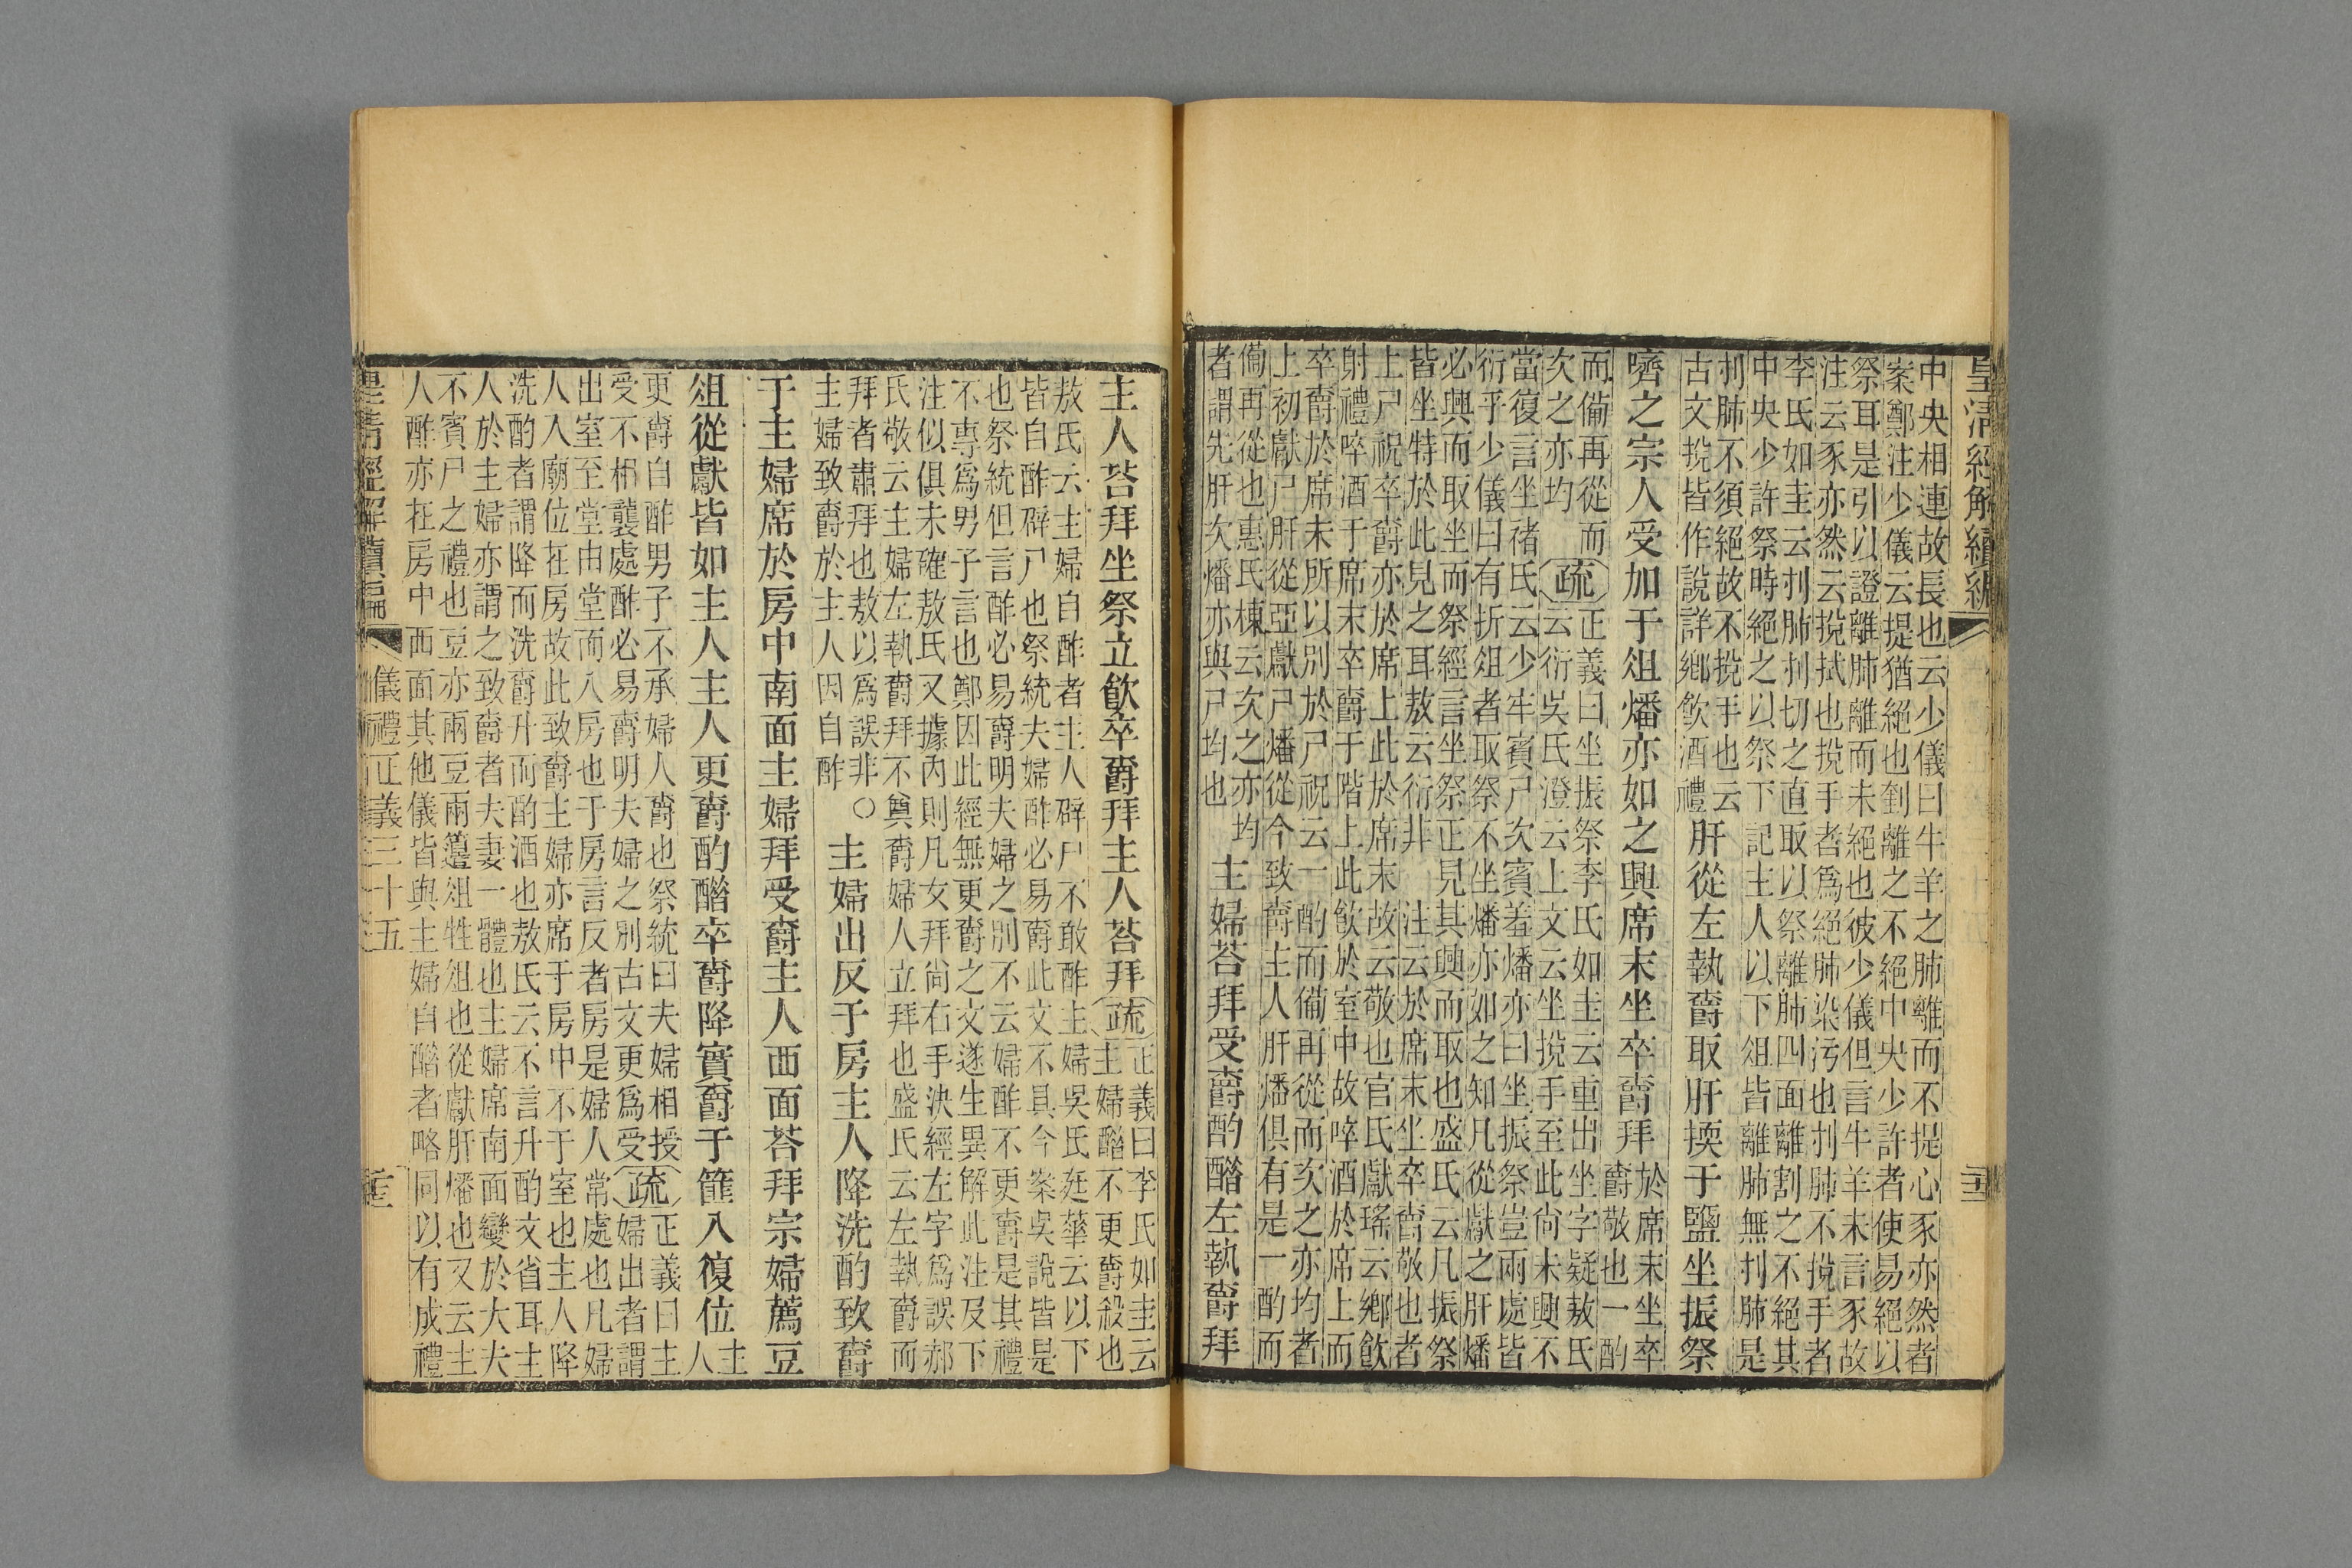 皇清經解續編
中央相連故長也云少儀曰牛羊之肺離而不提心豕亦然者
案鄭注少儀云提猶絕也刲離之不絕中央少許者使易絕以
祭耳是引以證離肺離而未絕也彼少儀但言牛羊未言豕故
注云豕亦然云挩拭也挩手者為絕肺染污也刌肺不挩手者
李氏如圭云刌肺刌切之直取以祭離肺四面離割之不絕其
中央少許祭時絕之以祭下記主人以下俎皆離肺無刌肺是
刌肺不須絕故不挩手也云
古文挩皆作說詳鄉飲酒禮
肝從左執爵取肝擩于鹽坐振祭
嚌之宗人受加于俎燔亦如之興席末坐卒爵拜
於席末坐卒
爵敬也一酌
而備再從而
次之亦均
疏
正義曰坐振祭李氏如圭云重出坐字疑敖氏
云衍吳氏澄云上文云坐挩手至此尚未興不
當復言坐褚氏云少牢賓尸次賓羞燔亦曰坐振祭豈兩處皆
衍乎少儀曰有折俎者取祭不坐燔亦如之知凡從獻之肝燔
必興而取坐而祭經言坐祭正見其興而取也盛氏云凡振祭
皆坐特於此見之耳敖云衍非 注云於席末坐卒爵敬也者
上尸祝卒爵亦於席上此於席末故云敬也官氏獻瑤云鄉飲
射禮啐酒于席末卒爵于階上此飲於室中故啐酒於席上而
卒爵於席末所以別於尸祝云一酌而備再從而次之亦均者
上初獻尸肝從亞獻尸燔從今致爵主人肝燔俱有是一酌而
備再從也惠氏棟云次之亦均
者謂先肝次燔亦與尸均也
主婦荅拜受爵酌醋左執爵拜
主人荅拜坐祭立飲卒爵拜主人荅拜
疏
正義曰李氏如圭云
主婦醋不更爵殺也
敖氏云主婦自酢者主人辟尸不敢酢主婦吳氏廷華云以下
皆自酢辟尸也祭統夫婦酢必易爵此文不具今案吳說皆是
也祭統但言酢必易爵明夫婦之別不云婦酢不更爵是其禮
不專為男子言也鄭因此經無更爵之文遂生異解此注及下
注似俱未確敖氏又據內則凡女拜尚右手決經左字為誤郝
氏敬云主婦左執爵拜不奠爵婦人立拜也盛氏云左執爵而
拜者肅拜也敖以為誤非○
主婦致爵於主人因自酢
主婦出反于房主人降洗酌致爵
于主婦席於房中南面主婦拜受爵主人西面荅拜宗婦薦豆
俎從獻皆如主人主人更爵酌醋卒爵降實爵于篚入復位
主
人
更爵自酢男子不承婦人爵也祭統曰夫婦相授
受不相襲處酢必易爵明夫婦之別古文更為受
疏
正義曰主
婦出者謂
出室至堂由堂而入房也于房言反者房是婦人常處也凡婦
人入廟位在房故此致爵主婦亦席于房中不于室也主人降
洗酌者謂降而洗爵升而酌酒也敖氏云不言升酌文省耳主
人於主婦亦謂之致爵者夫妻一體也主婦席南面變於大夫
不賓尸之禮也豆亦兩豆兩籩俎牲俎也從獻肝燔也又云主
人酢亦在房中西面其他儀皆與主婦自醋者略同以有成禮
皇清經解續編
儀禮正義三十五